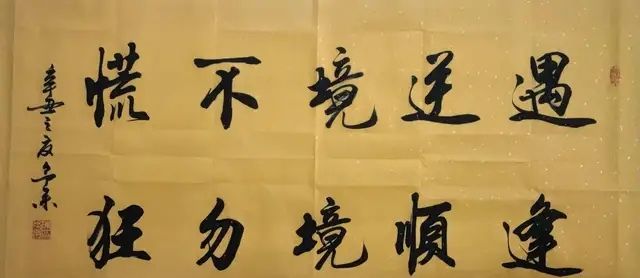 遇逆境不慌
逢順境勿狂
辛丑之夏